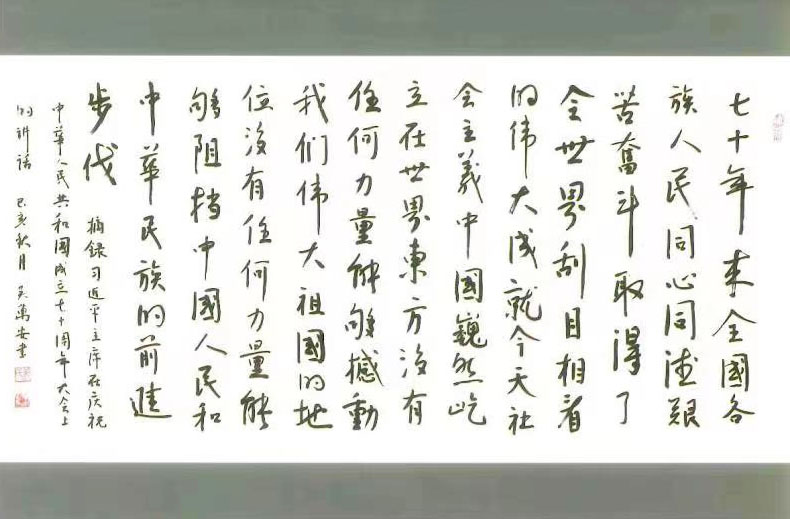 七十年来全國各
族人民同心同德艱
苦奮斗取得了
令世界刮目相看
的伟大成就今天社
会主義中國巍然屹
立在世界東方沒有
任何力量能够撼動
我们伟大祖國的地
位沒有任何力量能
够阻挡中國人民和
中華民族的前進
步伐
摘録习近平主席在庆祝
中華人民共和國成立七十周年大会上
的讲话 己亥秋月 吴萬安書